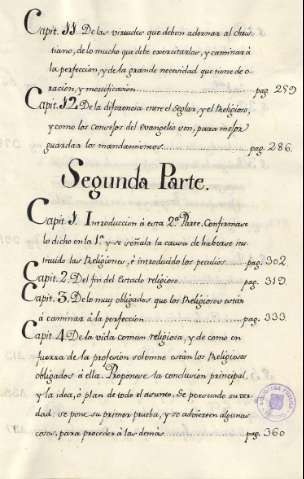 Capit. 11. De las virtudes que deben adornar al Chris-
tiano, de lo mucho que debe exercitarlas, y caminar á
la perfeccion, y de la grande necesidad que tiene de o-
racion, y mortificacion. pag. 259
Capit. 12. De la diferencia entre el Seglar, y el Religioso,
y como los consejos del evangelio ven, para mejor
guardar los mandamientos. pag. 286.
Segunda Parte.
Capit. 1. Introduccion á esta 2ª Parte. Confirmase
lo dicho en la 1ª y se señala la causa de haberse ins-
truido las Religiones, é introducido los peculios. pag. 302
Capit. 2. Del fin del Estado religioso. pag. 319
Capit. 3. De lo muy obligados que los Religiosos están
á caminar á la perfeccion. pag. 333
Capit. 4. De la vida comun religiosa, y de como en
fuerza de la profesion solemne están los Religiosos
obligados á ella. Proponese la conclusion principal,
y la idea, ó plan de todo el asunto. Se persuade su ver-
dad: se pone su primer prueba, y se advierten algunas
cosas, para proceder á las demás. pag. 360